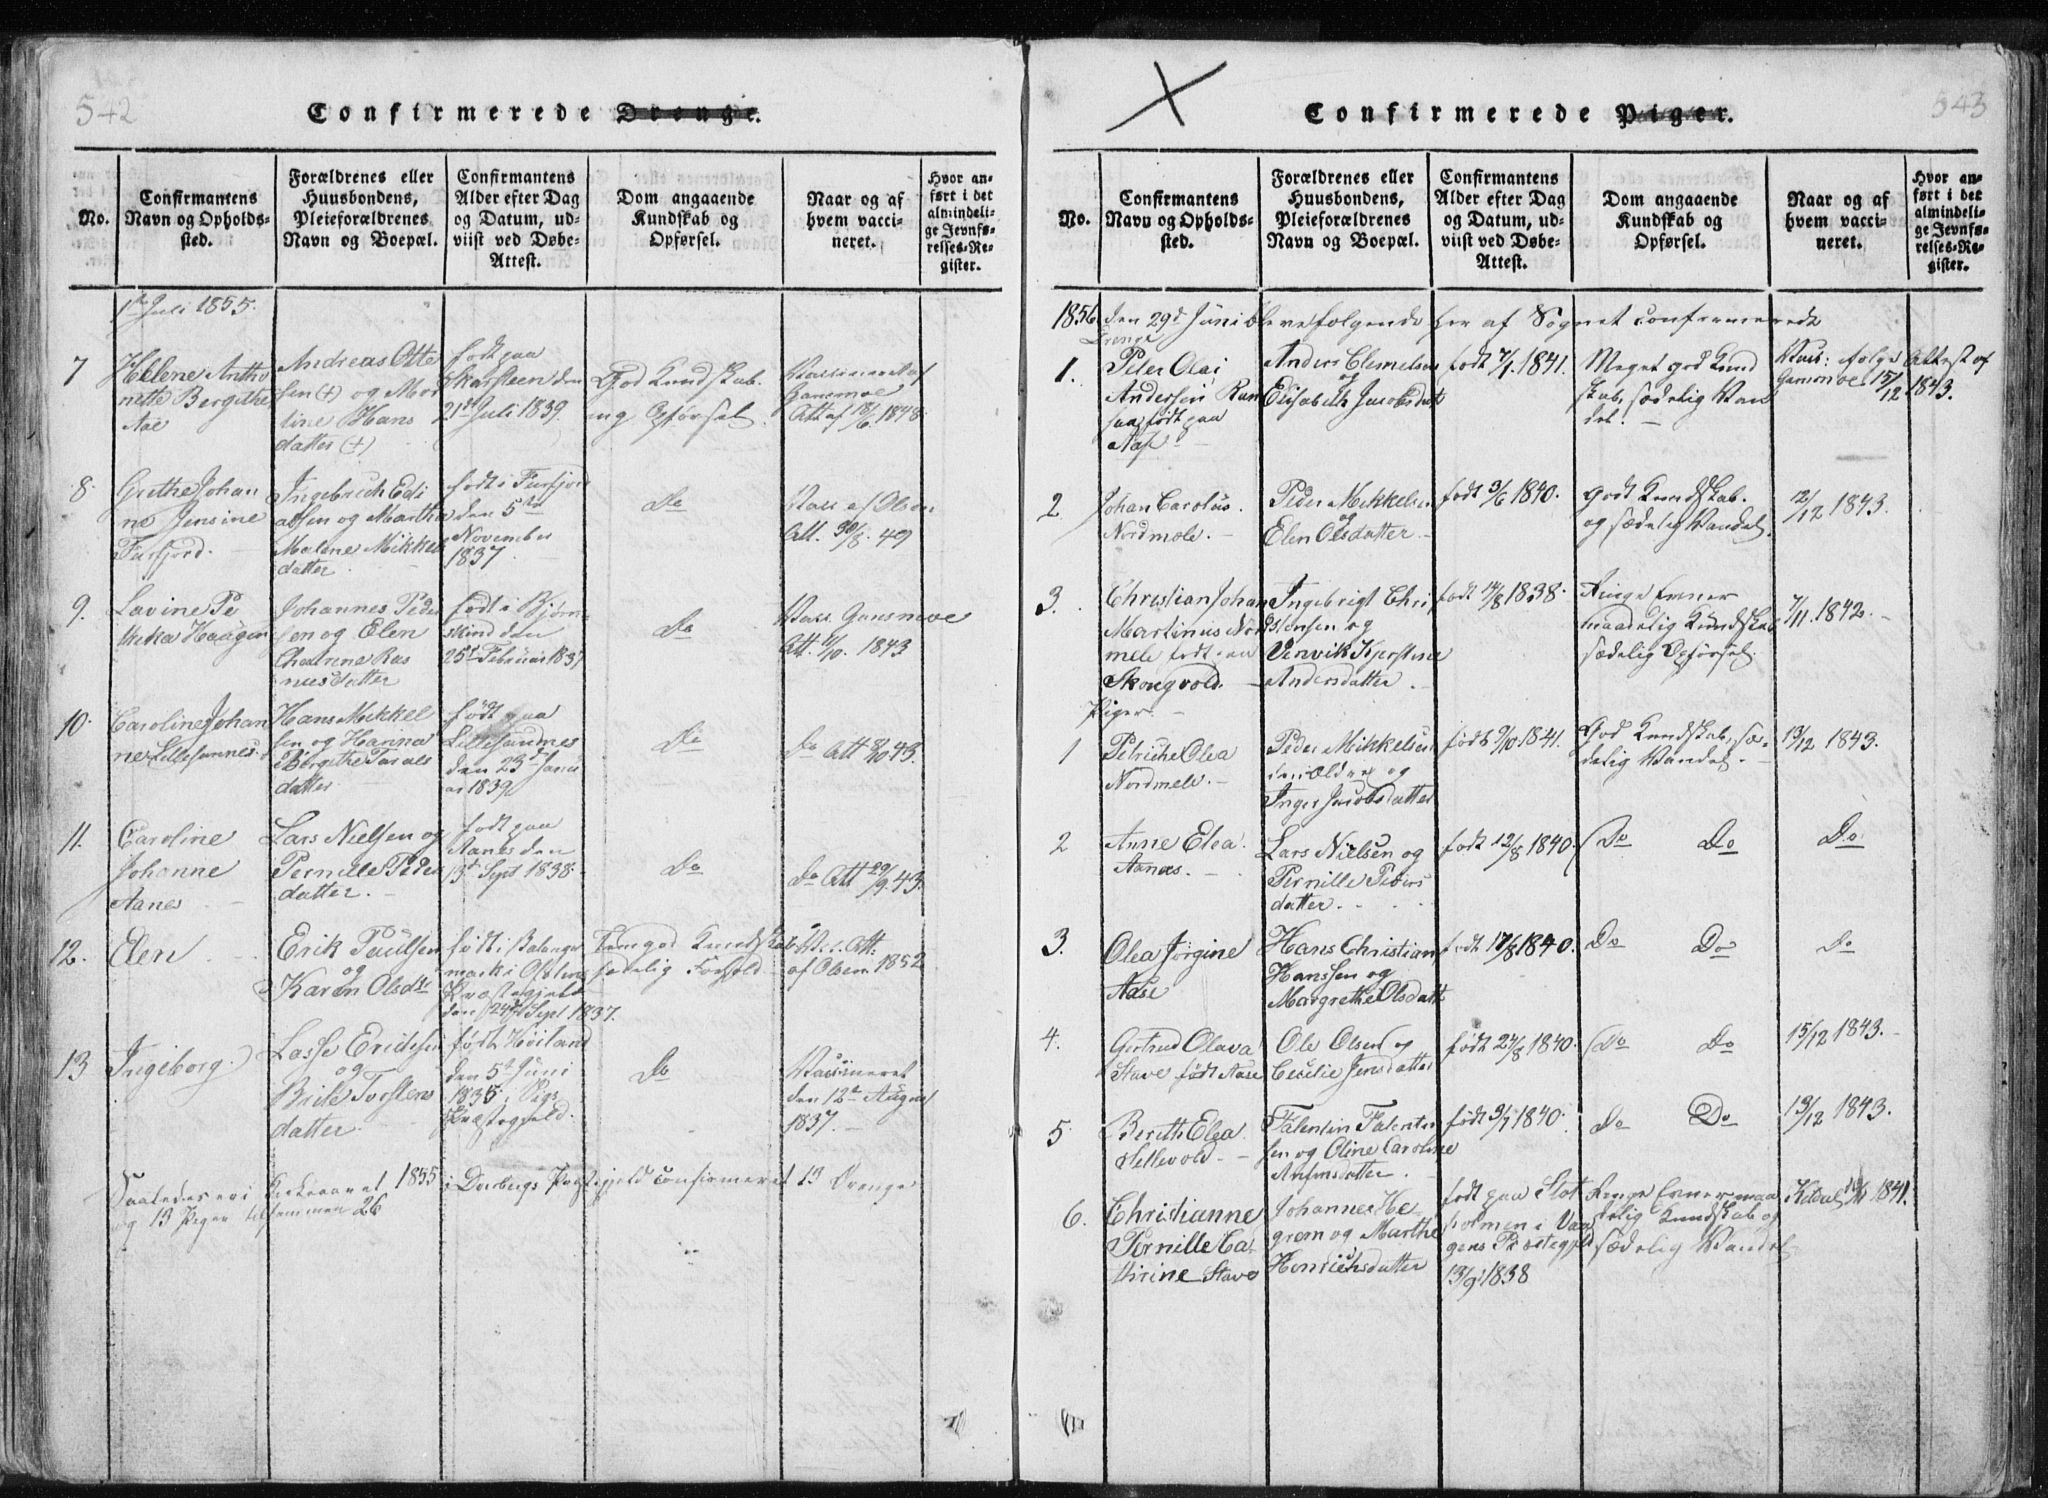 542
Confirmerede Drenge.
No.
Confirmantens
Navn og Opholds-
sted.
Forældrenes eller
Huusbondens,
Pleieforældrenes
Navn og Boepæl.
Confirmantens
Alder efter Dag
og Datum, ud-
viist ved Døbe-
Attest.
Dom angaaende
Kundskab og
Opførsel.
Naar og af
hvem vacci-
neret.
Hvor an-
ført i det
almindeli-
ge Jevnfø-
relses-Re-
gister.
1ste Juli 1855.
7
Helene Antho
nette Bergithe
Aae
Andreas Otte
sen (+) og Mor
tine Hans
datter (+)
født paa
Skarsteen den
21de Juli 1839.
God Kundskab.
og Opførsel.
Vaccineret af
Gansmoe
Att af 18/6 1848.
8.
Grethe Johan
ne Jensine
Furfjord.
Ingebrich Edi
assen og Martha
Malene Mikkels
datter.
født i Furfjord
den 5te
November
1837.
Do
Vacc af Olsen
Att. 30/8. 49
9.
Lavine Pe
trika Haugen
Johannes Peder
sen og Elen
Chatrine Ras
musdatter
født i Bjørn
skind den
25de Februar 1837
Do
Vacc. Gansmoe
Att. 11/10. 1843
10.
Caroline Johan
ne Lillesannes.
Hans Mikkel
sen og Hanna
Birgithe Torals
datter.
født paa
Lillesandnes
den 23de Janu
ar 1839.
Do
Do Att 8/10 43.
11.
Caroline
Johanne
Aanes
Lars Nielsen og
Pernille Peder
datter.
født paa
Aanes den
13de Sept 1838.
Do
Do Att 29/9 43.
12.
Elen
Erik Paulsen
og
Karen Olsdtr
født i Balanger
mark i Ofotens
Præstegjeld
den 24de Sept 1837.
Temgod Kundskab
sædelig Forhold
Vacc. Att:
af Olsen 1852
13
Ingeborg.
Lasse Ericksen
og
Brite Torstens
datter.
født Høiland
den 5te Juni
1835 i Vigs
Præstegjeld.
Do
Vaccineret
den 12te August
1837.
Saaledes er i Kirkeaaret 1855 i Dverbergs Præstegjeld confirmeret 13 Drenge
og 13 Piger tilsammen 26
543
Confirmerede Piger.
No.
Confirmantens
Navn og Opholds-
sted.
Forældrenes eller
Huusbondens,
Pleieforældrenes
Navn og Boepæl.
Confirmantens
Alder efter Dag
og Datum, ud-
viist ved Døbe-
Attest.
Dom angaaende
Kundskab og
Opførsel.
Naar og af
hvem vacci-
neret.
Hvor an-
ført i det
almindeli-
ge Jevnfø-
relses-Re-
gister.
1856. den 29de Juni bleve følgende her af Sognet confirmerede
Drenge
1.
Peter Olai
Andersen Ram
saa, født paa
Aase
Anders Clemetsen
og
Elisabeth Jacobsdatt
født 7/1. 1841.
Meget god Kund
skab, sædelig Van
del.
Vacc: følge Attest af
Gansmoe 15/12 1843.
2
Johan Carolus.
Nordmele.
Peder Mikkelsen
og
Elen Olsdatter.
født 3/6 1840.
Godt Kundskab.
og sædelig Vandel.
12/12 1843.
3.
Christian Johan
Martinus Nord
mele født paa
Skougvold.
Ingebrigt Chri
stensen og
Venvik Kjerstine
Andersdatter.
født 14/8 1838.
Ringe Evner
maadelig Kundskab
sædelig Opførsel.
7/11. 1842.
Piger.
1
Petriche Olea
Nordmele.
Peder Mikkelsen
den Ældre og
Inger Jacobsdatter
født 9/10. 1841.
God Kundskab, sæ-
delig Vandel.
13/12 1843.
2
Anne Elea.
Aanæs.
Lars Nielsen og
Pernille Peders
datter.
født 12/8 1840.
Do Do
Do
3.
Olea Jørgine
Aase
Hans Christian
Hanssen og
Margrethe Olsdatt
født 17/8 1840.
Do Do
Do
4.
Gertrud Olava
Stave født Aase
Ole Olsen og
Cecilie Jensdatter
født 27/8 1840.
Do Do
15/12 1843.
5
Berith Elea
Sellevold.
Falentin Falentin
sen og Oline Caroline
Anfinsdatter.
født 3/7 1840.
Do Do
13/12 1843.
6.
Christianne
Pernille Ca-
thrine Stave
Johannes He-
grem og Marthe
Henrichsdatter
født paa Slot
holmen i Vaa
gens Præstegjeld
13/9 1838
Ringe Evner maa
delig Kundskab og
sædelig Vandel.
1841.